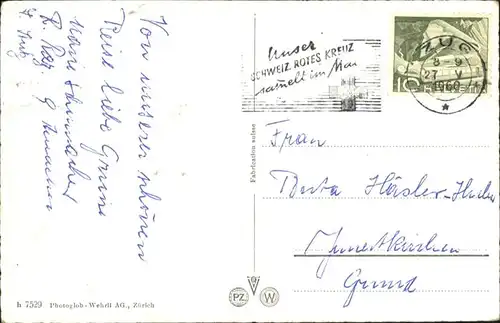 Von unserer schönen
Reise liebe Grüsse
Unser
SCHWEIZ. ROTES KREUZ
sammelt im Mai
ZUG
8-9
27. V.
1960
10 HELVETIA
Frau
Berta Häsler-Huber
Innertkirchen
Grund
Fabrication suisse
h 7529 Photoglob-Wehrli AG., Zürich
PZ W